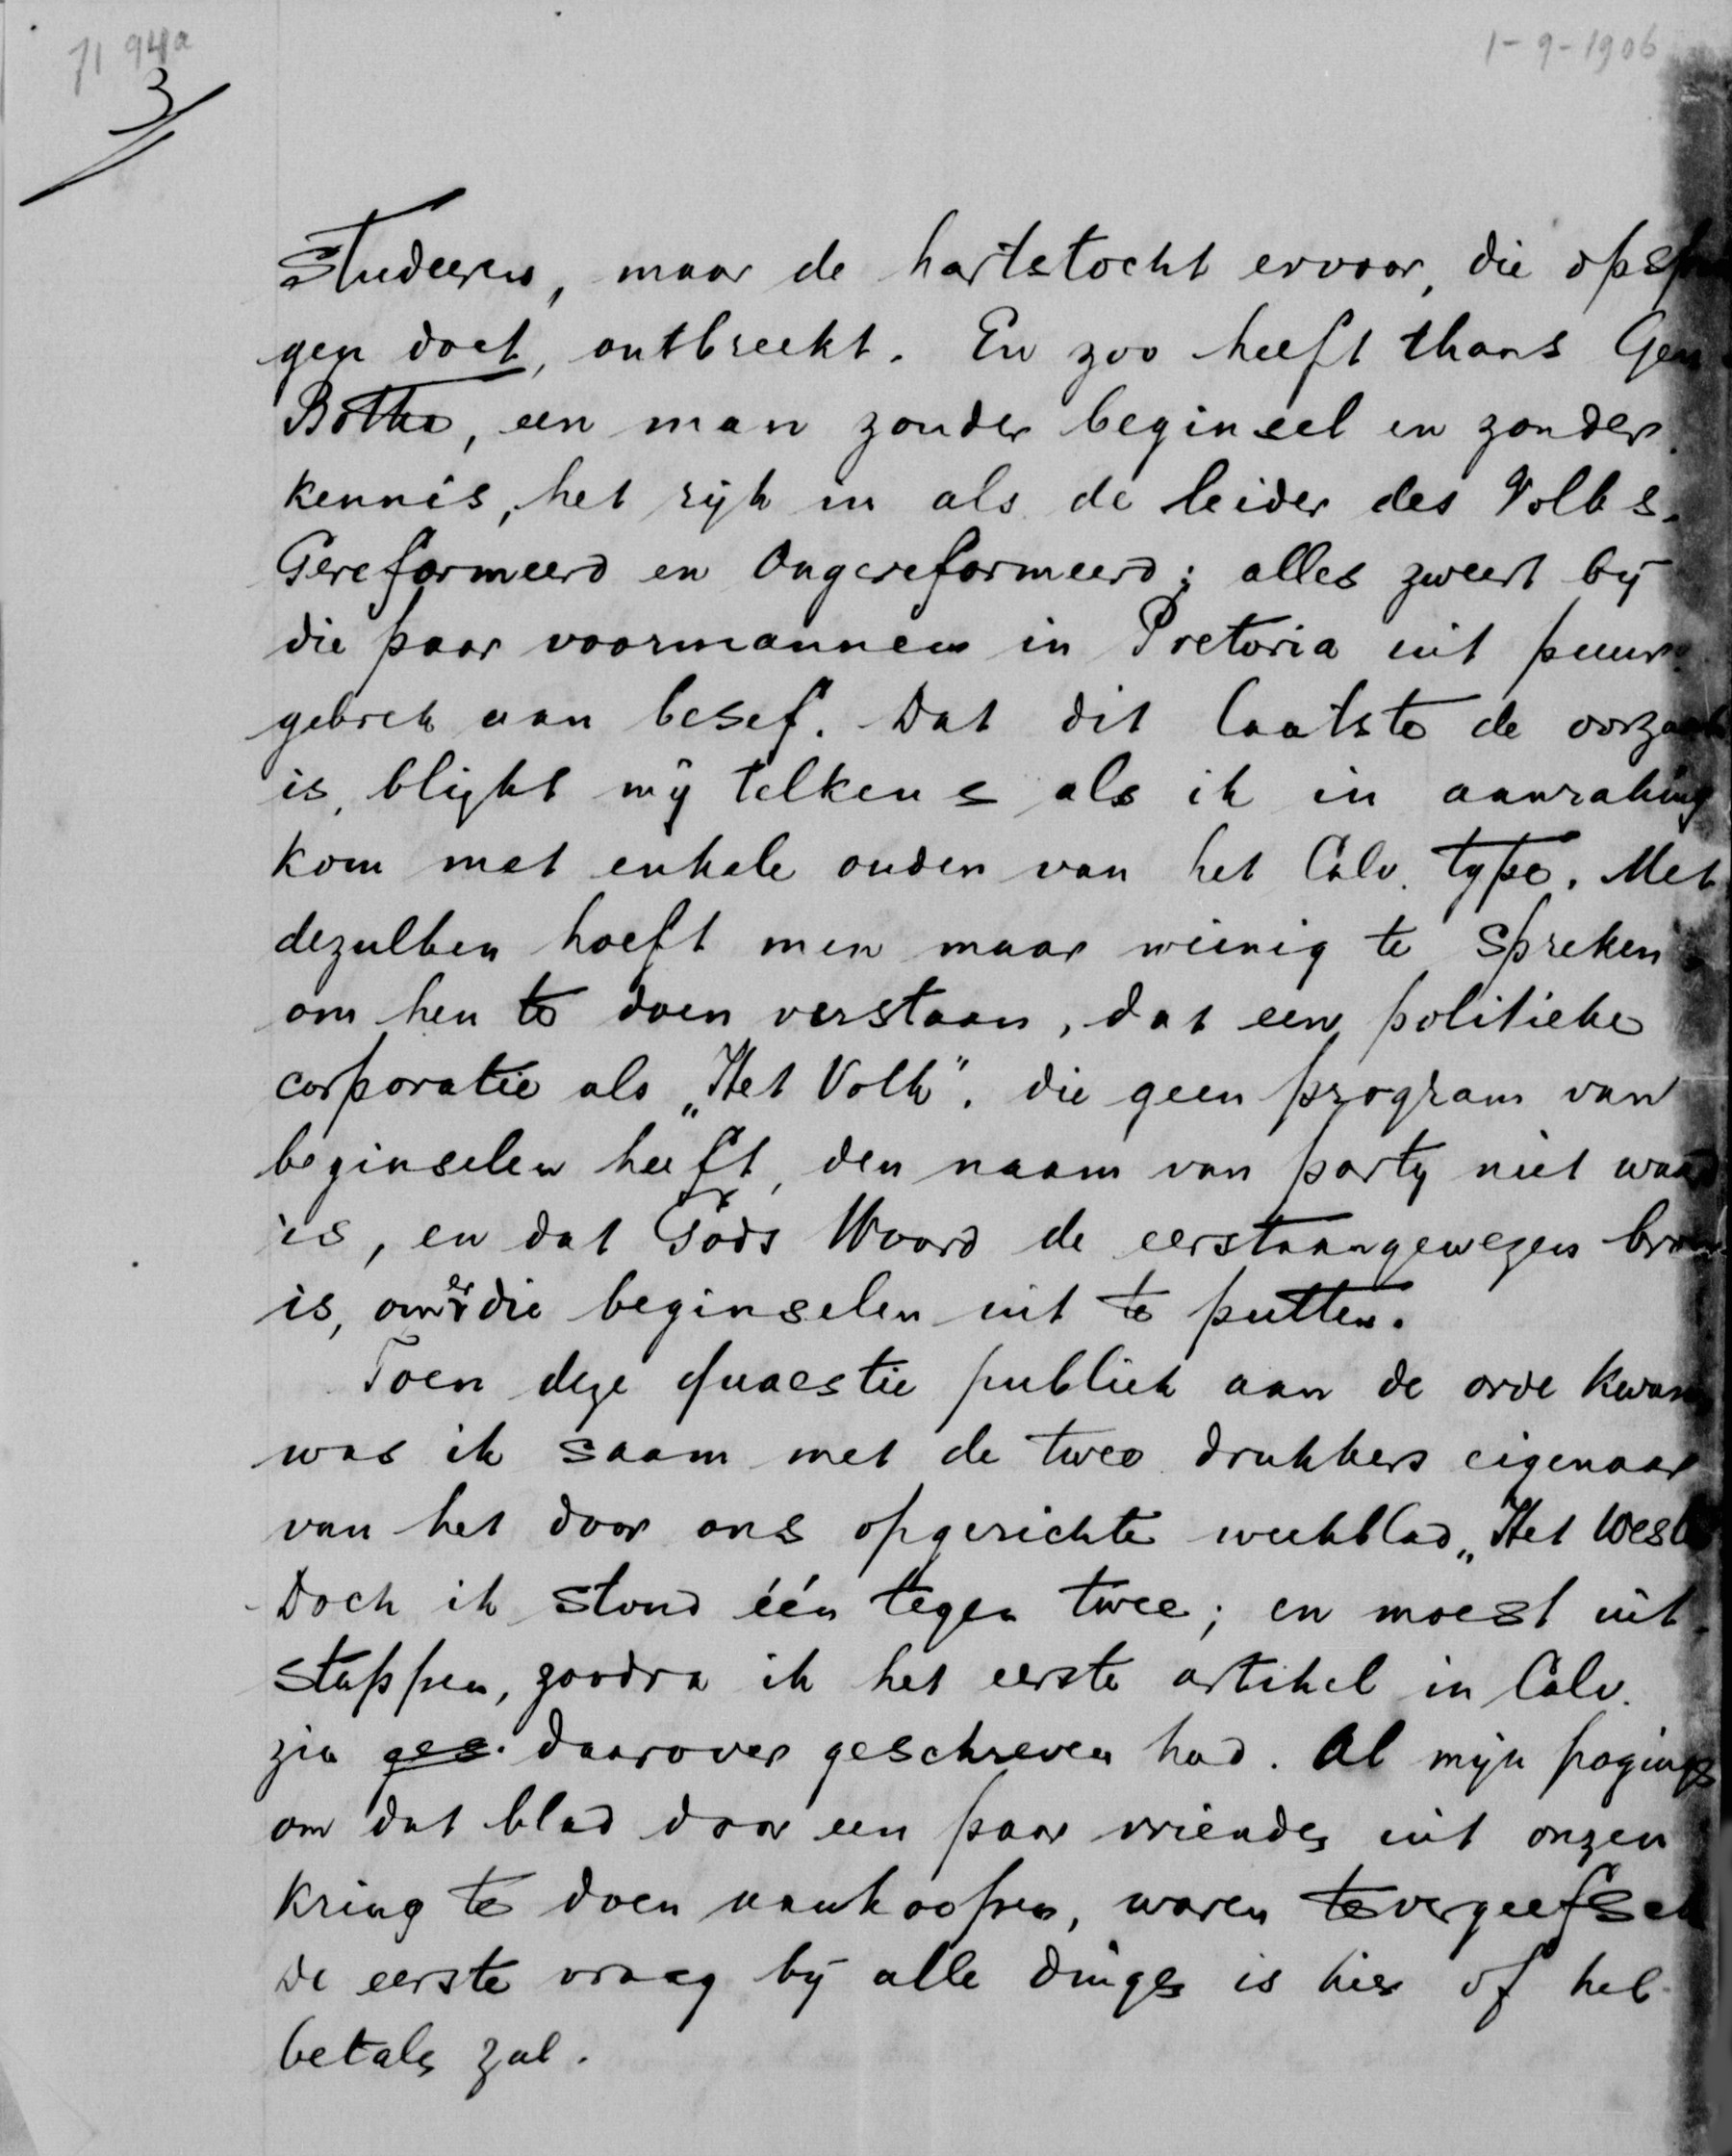 71 94a
1-9-1906
3
studeeren, maar de hartstocht ervoor, die opsp
gen doet, ontbreekt. En zoo heeft thans Gen
Botha, een man zonder beginsel en zonder
kennis, het rijk in als de leider des Volks.
Gereformeerd en Ongereformeerd; alles zweert bij
die paar voormannen in Pretoria uit puur
gebrek aan besef. Dat dit laatste de oorzaak
is, blijkt mij telkens als ik in aanraking
kom met enkele ouden van het Calv. type. Met
dezulken hoeft men maar weinig te spreken
om hen te doen verstaan, dat een politieke
corporatie als „Het Volk", die geen program van
beginselen heeft, den naam van party niet waard
is, en dat Gods Woord de eerstaangewezen bron
is, om er die beginselen uit te putten.
Toen deze quaestie publiek aan de orde kwam
was ik saam met de twee drukkers eigenaar
van het door ons opgerichte weekblad „Het West
Doch ik stond één tegen twee; en moest uit
stappen, zoodra ik het eerste artikel in Calv.
zin ges. daarover geschreven had. Al mijn pogings
om dat blad door een paar vrienden uit onzen
kring te doen aankoopen, waren tevergeefsch
De eerste vraag bij alle dingen is hier of het
betalen zal.